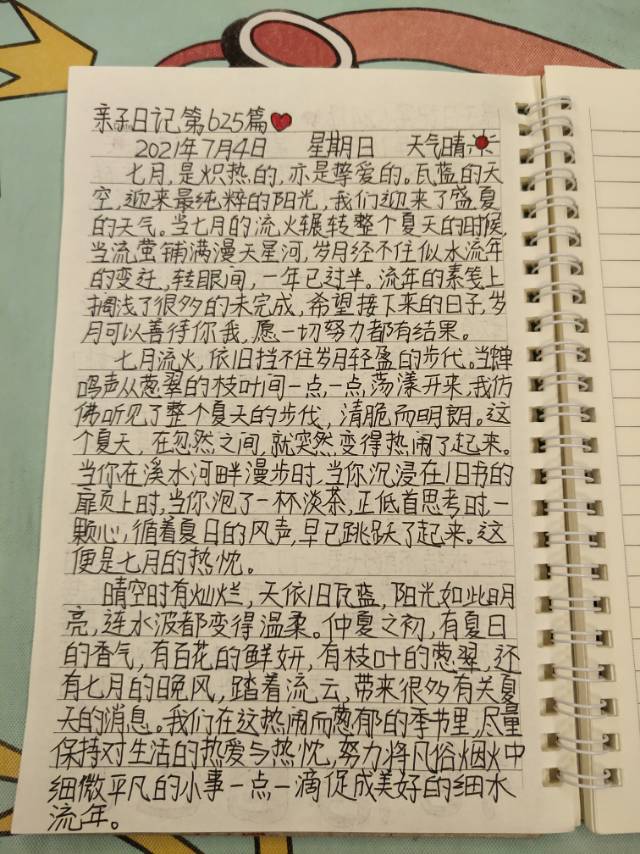 亲子日记第625篇
2021年7月4日 星期日 天气晴
七月,是炽热的,亦是挚爱的。瓦蓝的天
空,迎来最纯粹的阳光,我们迎来了盛夏
的天气。当七月的流火辗转整个夏天的时候,
当流萤铺满漫天星河,岁月经不住似水流年
的变迁,转眼间,一年已过半。流年的素笺上
搁浅了很多的未完成,希望接下来的日子,岁
月可以善待你我,愿一切努力都有结果。
七月流火,依旧挡不住岁月轻盈的步伐。当蝉
鸣声从葱翠的枝叶间一点一点,荡漾开来,我仿
佛听见了整个夏天的步伐,清脆而明朗。这
个夏天,在忽然之间,就突然变得热闹了起来。
当你在溪水河畔漫步时,当你沉浸在旧书的
扉页上时,当你泡了一杯淡茶,正低首思考时,一
颗心,循着夏日的风声,早已跳跃了起来。这
便是七月的热忱。
晴空时有灿烂,天依旧瓦蓝,阳光如此明
亮,连水波都变得温柔。仲夏之初,有夏日
的香气,有百花的鲜妍,有枝叶的葱翠,还
有七月的晚风,踏着流云,带来很多有关夏
天的消息。我们在这热闹而葱郁的季节里,尽量
保持对生活的热爱与热忱,努力将凡俗烟火中
细微平凡的小事一点一滴促成美好的细水
流年。